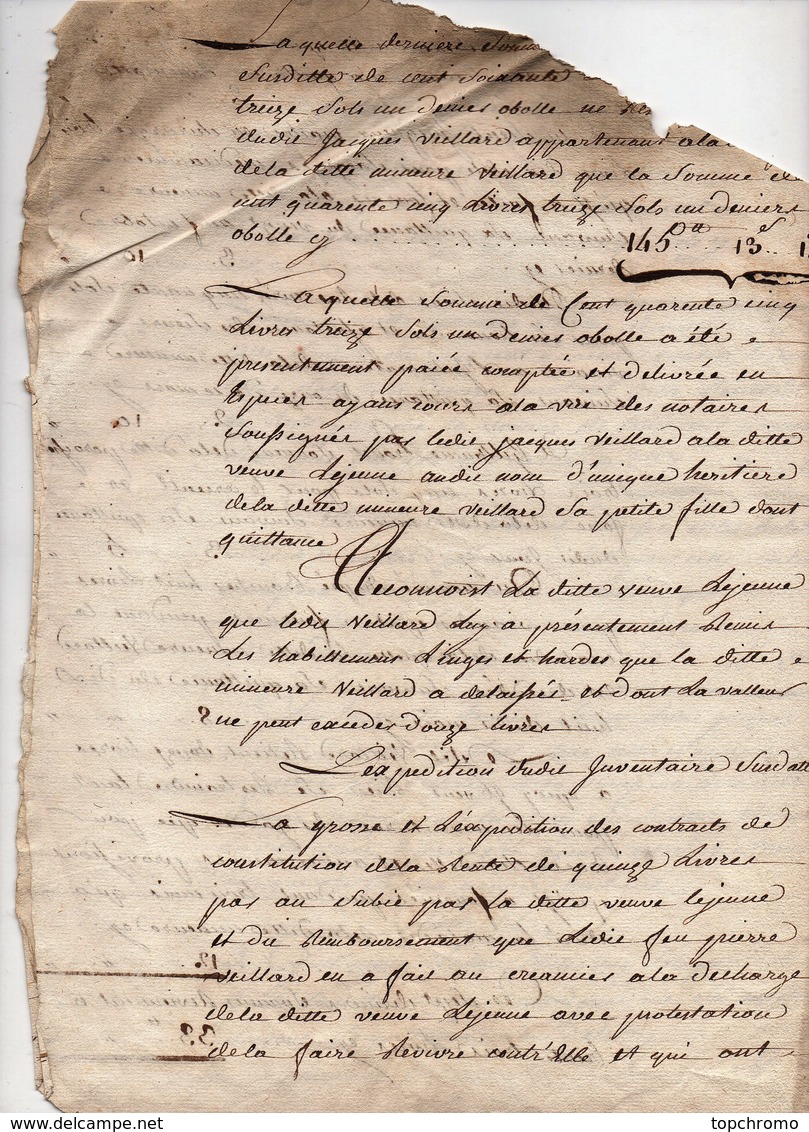 Laquelle derniere Somm
Susditte de cent Soixante
treize Sols un denier obolle ne Res
dudit Jacques Veillard appartenant ala
dela ditte mineure Veillard que la Somme de
cent quarente cinq Livres treize Sols un deniers
obolle cy ........ 145ᵗᵗ 13ˢ 1
Laquelle Somme de Cent quarente cinq
Livres treize Sols un denier obolle a été
presentement paiée comptée et delivrée en
Especes ayans cours ala vüe des notaires
Soussignés par ledit jacques Veillard ala ditte
veuve Lejeune audit nom d'unique heritiere
dela ditte mineure Veillard Sa petite fille dont
quittance
Reconnoist La ditte veuve Lejeune
que ledit Veillard Luy a présentement Remis
Les habillemens Linges et hardes que la ditte
mineure Veillard a delaissés et dont La valleur
ne peut exceder douze livres
L'expedition dudit Inventaire Susdatt
La grosse et L'éxpedition des contracts de
constitution dela Rente de quinze Livres
par an Subie par la ditte veuve lejeune
et du Remboursement que Ledit feu pierre
Veillard en a fait au creancier ala decharge
dela ditte veuve Lejeune avec protestation
dela faire Revivre contr'Elle et qui ont
topchromo